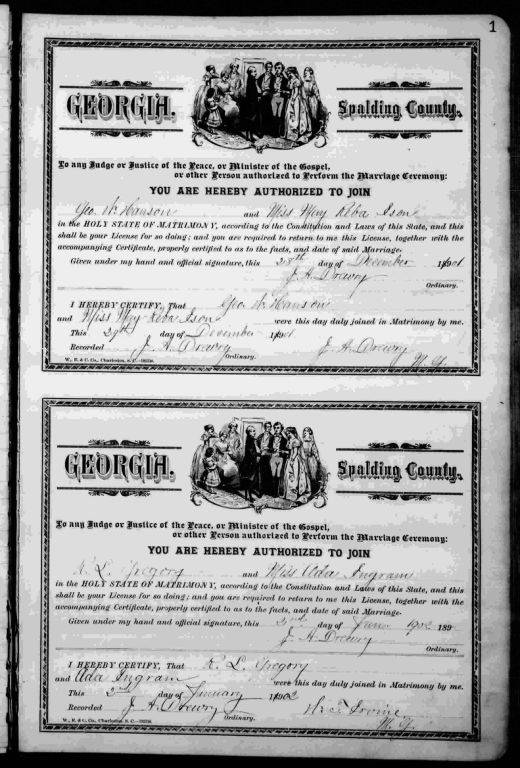 1
GEORGIA. Spalding County.
To any Judge or Justice of the Peace, or Minister of the Gospel,
or other Person authorized to Perform the Marriage Ceremony:
YOU ARE HEREBY AUTHORIZED TO JOIN
Geo. W. Hanson and Miss May Reba Ison
in the HOLY STATE OF MATRIMONY, according to the Constitution and Laws of this State, and this
shall be your License for so doing; and you are required to return to me this License, together with the
accompanying Certificate, properly certified to as to the facts, and date of said Marriage.
Given under my hand and official signature, this 28th day of December 1901
J. A. Drewry
Ordinary.
I HEREBY CERTIFY, That Geo. W. Hanson
and Miss May Reba Ison were this day duly joined in Matrimony by me.
This 29th day of December 1901
Recorded J. A. Drewry J. A. Drewry
Ordinary. M. G.
W., E. & C. Co., Charleston, S. C.
GEORGIA. Spalding County.
To any Judge or Justice of the Peace, or Minister of the Gospel,
or other Person authorized to Perform the Marriage Ceremony:
YOU ARE HEREBY AUTHORIZED TO JOIN
R. L. Gregory and Miss Ada Ingram
in the HOLY STATE OF MATRIMONY, according to the Constitution and Laws of this State, and this
shall be your License for so doing; and you are required to return to me this License, together with the
accompanying Certificate, properly certified to as to the facts, and date of said Marriage.
Given under my hand and official signature, this 2nd day of 1902 189
J. A. Drewry
Ordinary.
I HEREBY CERTIFY, That R. L. Gregory
and Ada Ingram were this day duly joined in Matrimony by me.
This 2nd day of January 1902
Recorded J. A. Drewry Irvine
Ordinary. M. G.
W., E. & C. Co., Charleston, S. C.